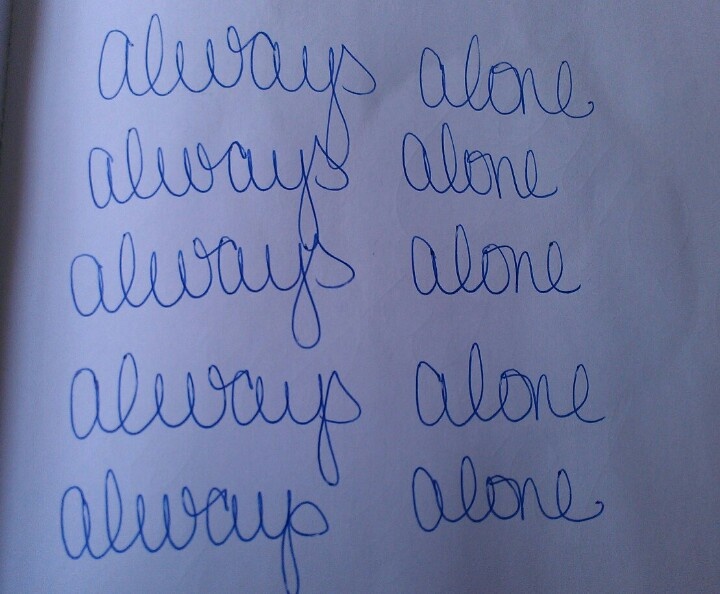 always alone
always alone
always alone
always alone
always alone